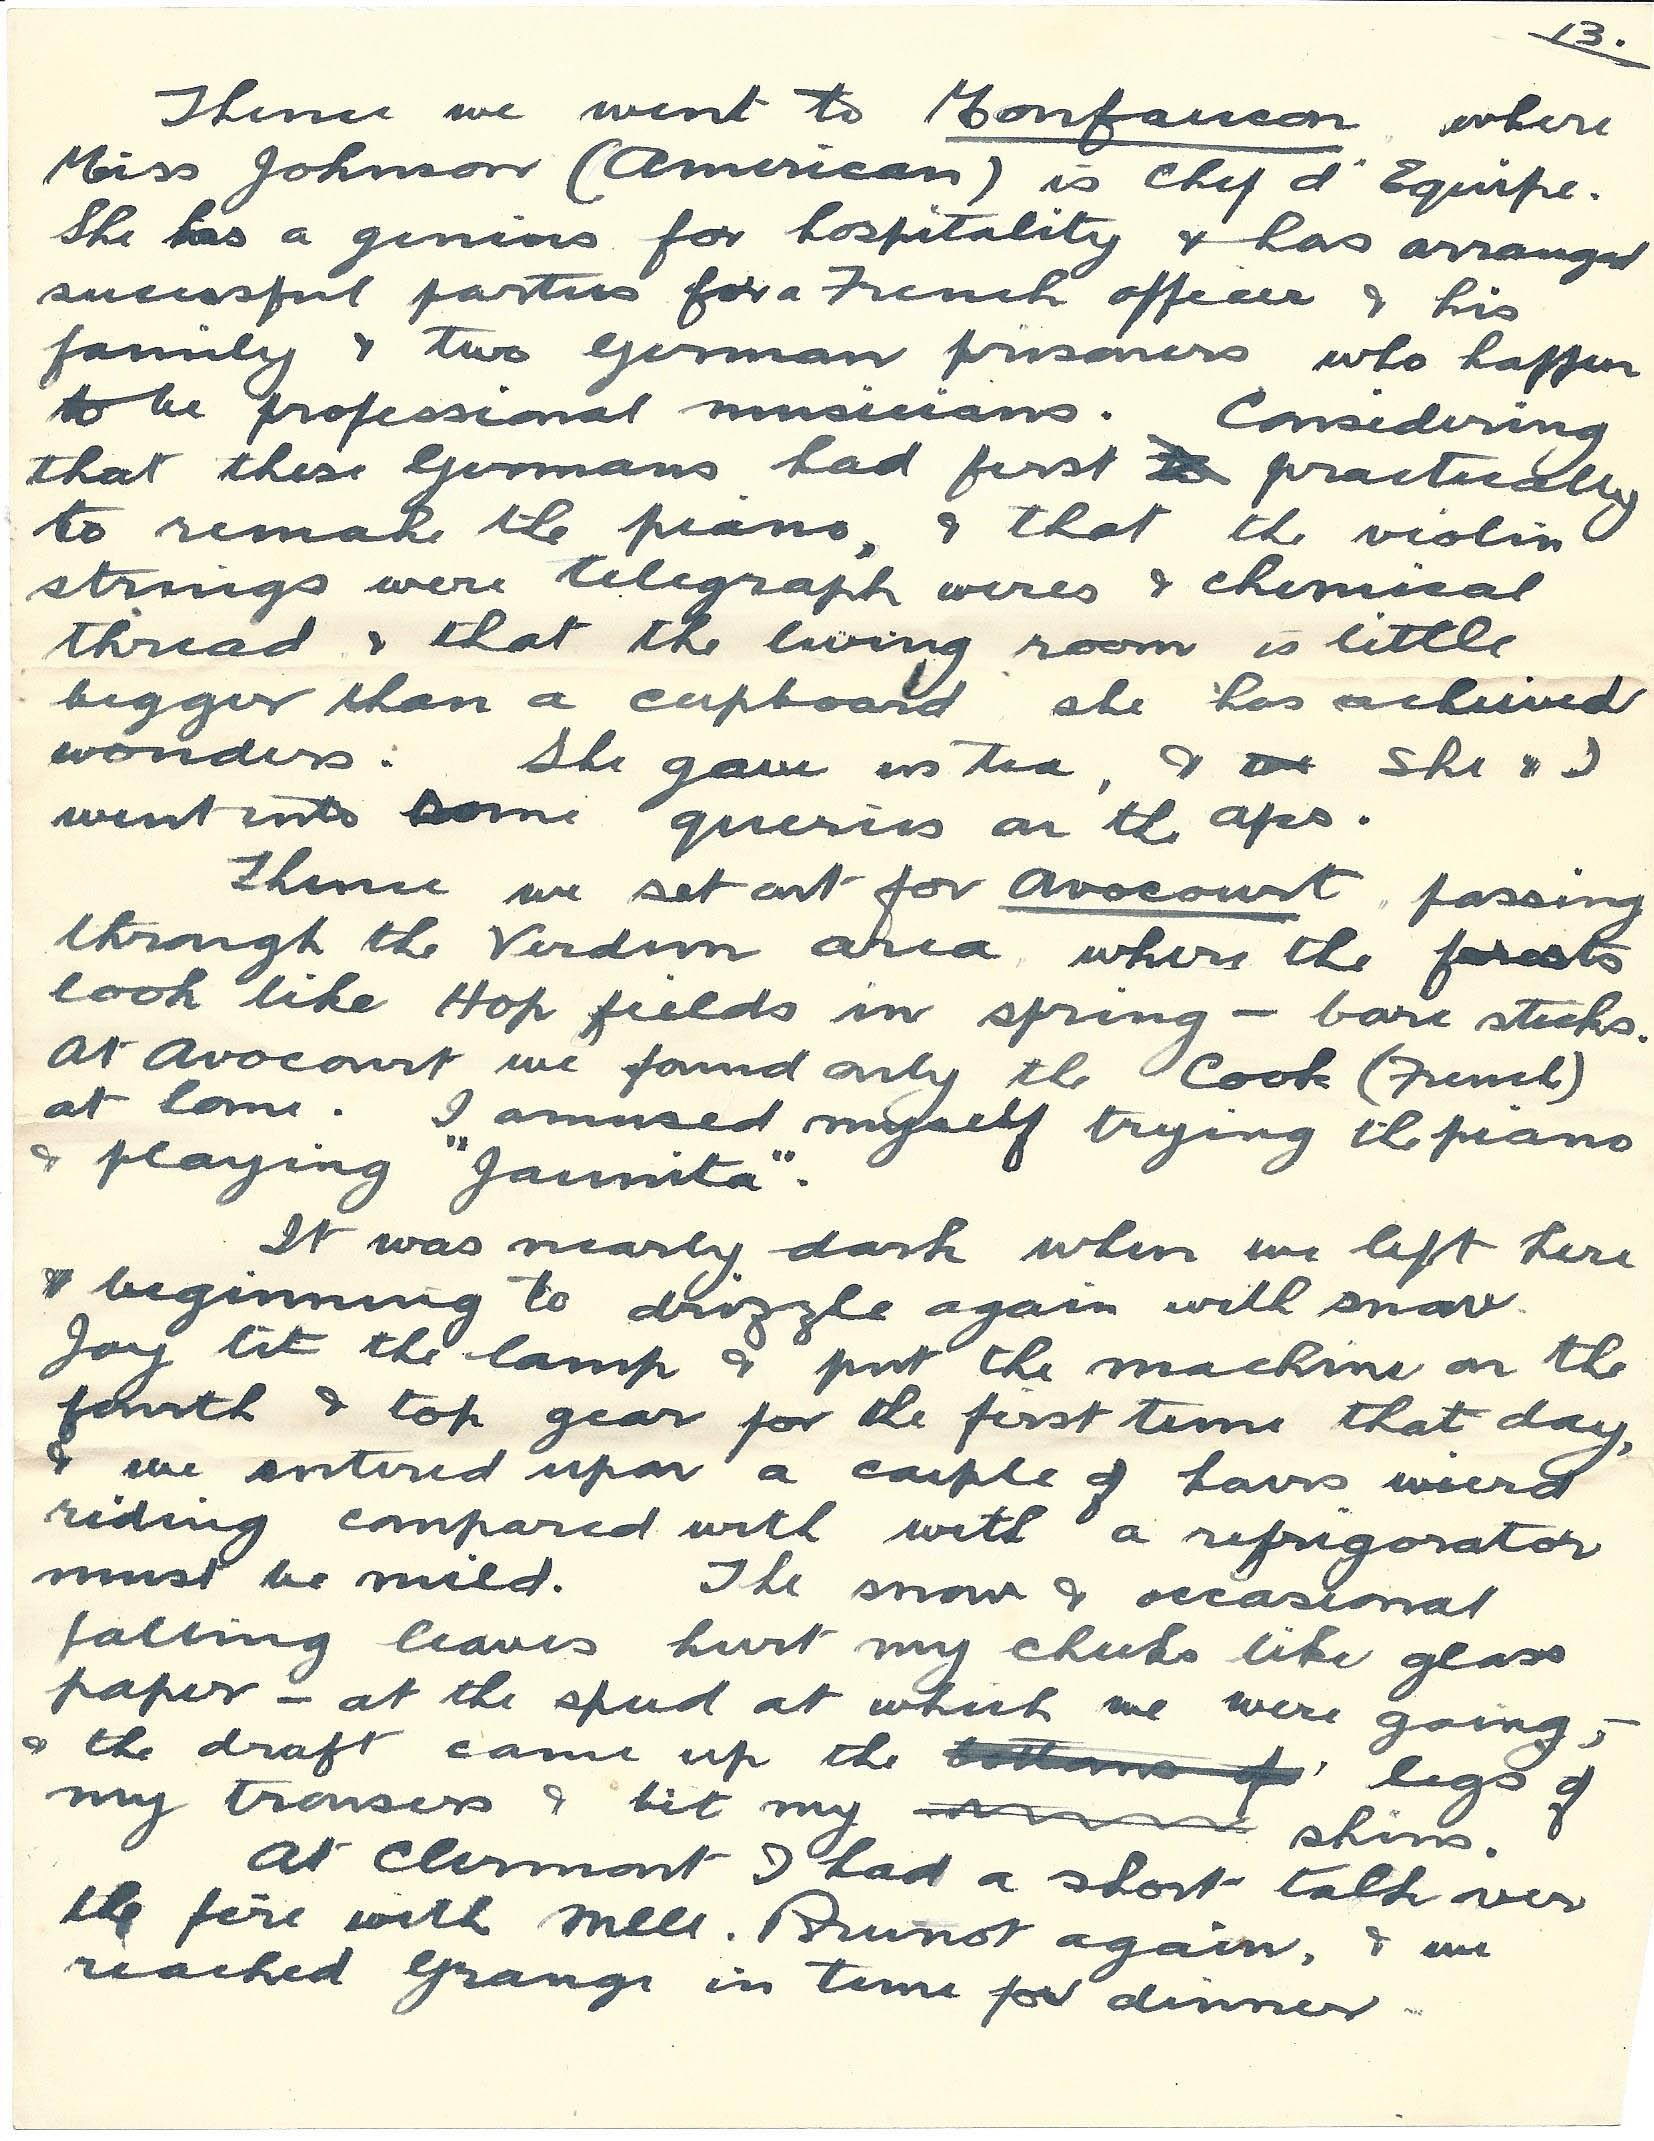 13.
Thence we went to Monfaucon where
Miss Johnson (American) is Chef d'Equipe.
She has a genius for hospitality & has arranged
sucessful parties for a French officer & his
family & two German prisoners who happen
to be professional musicians. Considering
that these Germans had first practically
to remake the piano, & that the violin
strings were telegraph wires & chemical
thread & that the living room is little
bigger than a cupboard she has achieved
wonders. She gave us tea, & she & I
went into some queries on the aps.
Thence we set out for Avocourt passing
through the Verdun area where the forests
look like Hop fields in spring – bare sticks.
At Avocourt we found only the Cook (French)
at home. I amused myself trying the piano
& playing "Jaunita".
It was nearly dark when we left here
& beginning to drizzle again with snow.
Joy lit the lamp & put the machine on the
fourth & top gear for the first time that day,
& we entered upon a couple of hours wierd
riding compared with with a refrigorator
must be mild. The snow & occasional
falling leaves hurt my cheeks like glass
paper – at the speed at which we were going, –
& the draft came up the bottoms of legs of
my trousers & bit my shins.
At Clermont I had a short talk over
the fire with Mlle. Brunot again, & we
reached Grange in time for dinner